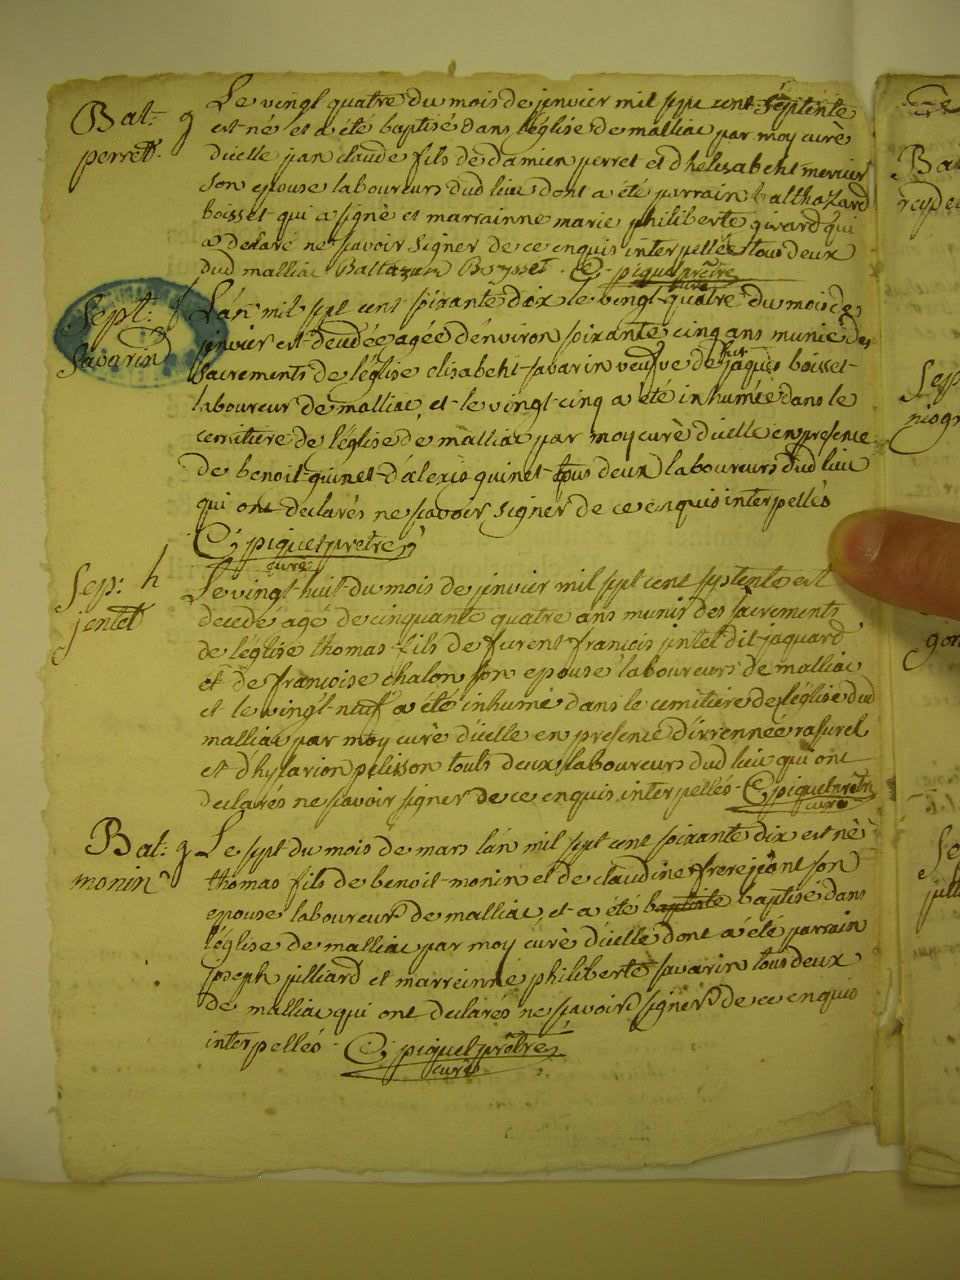 Bat: g
perret
Le vingt quatre du mois de jenvier mil sept cent septente
est né et a été baptisé dans l'église de malliac par moy curè
d'icelle jean claude fils de damien perret et d'helisabeht mercier
son epouse laboureurs dud lieu dont a été parrain balthazard
boisset qui a signè et marrainne marie philiberte girard qui
a declaré ne scavoir signer de ce enquis interpellée tous deux
dud malliac Baltazar Boysset. C piquet prètre
curè
Sept: f
Savarin
L'an mil sept cent soixante dix le vingt quatre du mois de
jenvier est decedée agée d'environ soixante cinq ans munie des
sacrements de l'église elisabeht savarin veufve de jaques boisset
laboureur de malliac, et le vingt cinq a été inhumée dans le
cemitiere de l'église de malliac par moy curè d'icelle en presence
de benoit quinet d'alexis quinet tous deux laboureurs dud lieu
qui ont declarés ne scavoir signer de ce enquis interpellés
C piquet pretre
curè
Sep: h
jentet
Le vingt huit du mois de jenvier mil sept cent septente est
decedé agé de cinquante quatre ans munis des sacrements
de l'église thomas fils de françois jntet dit jaquard
et de françoise chalon son epouse laboureurs de malliac
et le vingt neuf a été inhumé dans le cemitiere de l'église dud
malliac par moy curè d'icelle en presence d'irrennée rasurel
et d'hylarion pelisson touts deux laboureurs dud lieu qui ont
declarés ne scavoir signer de ce enquis interpellés. C piquet prètre
curè
Bat: g
monin
Le sept du mois de mars l'an mil sept cent soixante dix est né
thomas fils de benoit monin et de claudine frerejeont son
epouse laboureur de malliac, et a été baptiste baptisé dans
l'église de malliac par moy curè d'icelle dont a été parrain
joseph julliard et marreinne philiberte savarin tous deux
de malliac qui ont declarés ne scavoir signer de ce enquis
interpellés. C piquet prètre
curè